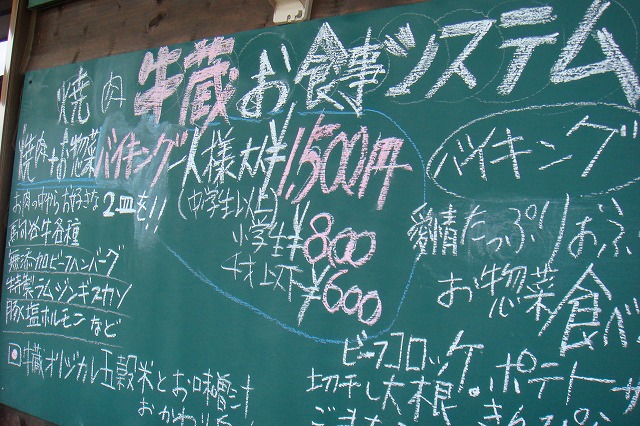 焼肉 牛蔵 お食事システム
焼肉+お惣菜バイキング
一人様大人¥1,500円
(中学生以上)
小学生¥800
¥600
お肉の中からお好きな
2皿を!!
牛各種
無添加ビーフハンバーグ
特製ラムジンギスカン
豚塩ホルモンなど
牛蔵オリジナル五穀米とお味噌汁
おかわり
バイキング
愛情たっぷり おふ
お惣菜 食べ
ビーフコロッケ、ポテトサ
切干し大根
ごま
きんぴ